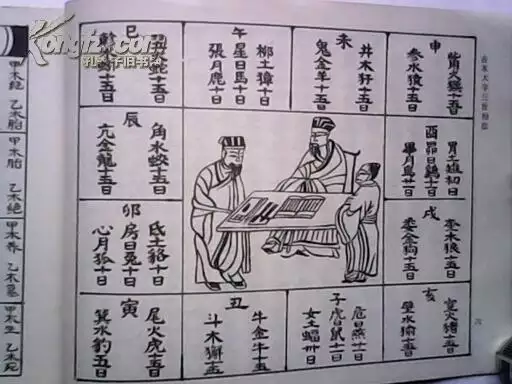 Kongfz.com
孔夫子旧书网
申
觜火猴十五日
參水猿十五日
未
井木犴十五日
鬼金羊十五日
柳土獐十日
午
星日馬十日
張月鹿十日
巳
翼火蛇十五日
十五日
胃土雉初日
酉
昴日鷄十日
畢月烏廿一日
辰
角水蛟十五日
亢金龍十五日
戌
奎木狼十五日
婁金狗十五日
氐土貉十日
卯
房日兔十日
心月狐十日
亥
室火猪十五日
壁水㺄十五日
危日燕廿日
子
虛日鼠十一日
女土蝠廿日
丑
牛金牛十五
斗木獬十五
寅
尾火虎十五日
箕水豹十五日
甲木絕
乙木胎
甲木胎
乙木絕
甲木养
乙木墓
甲木生
乙木死